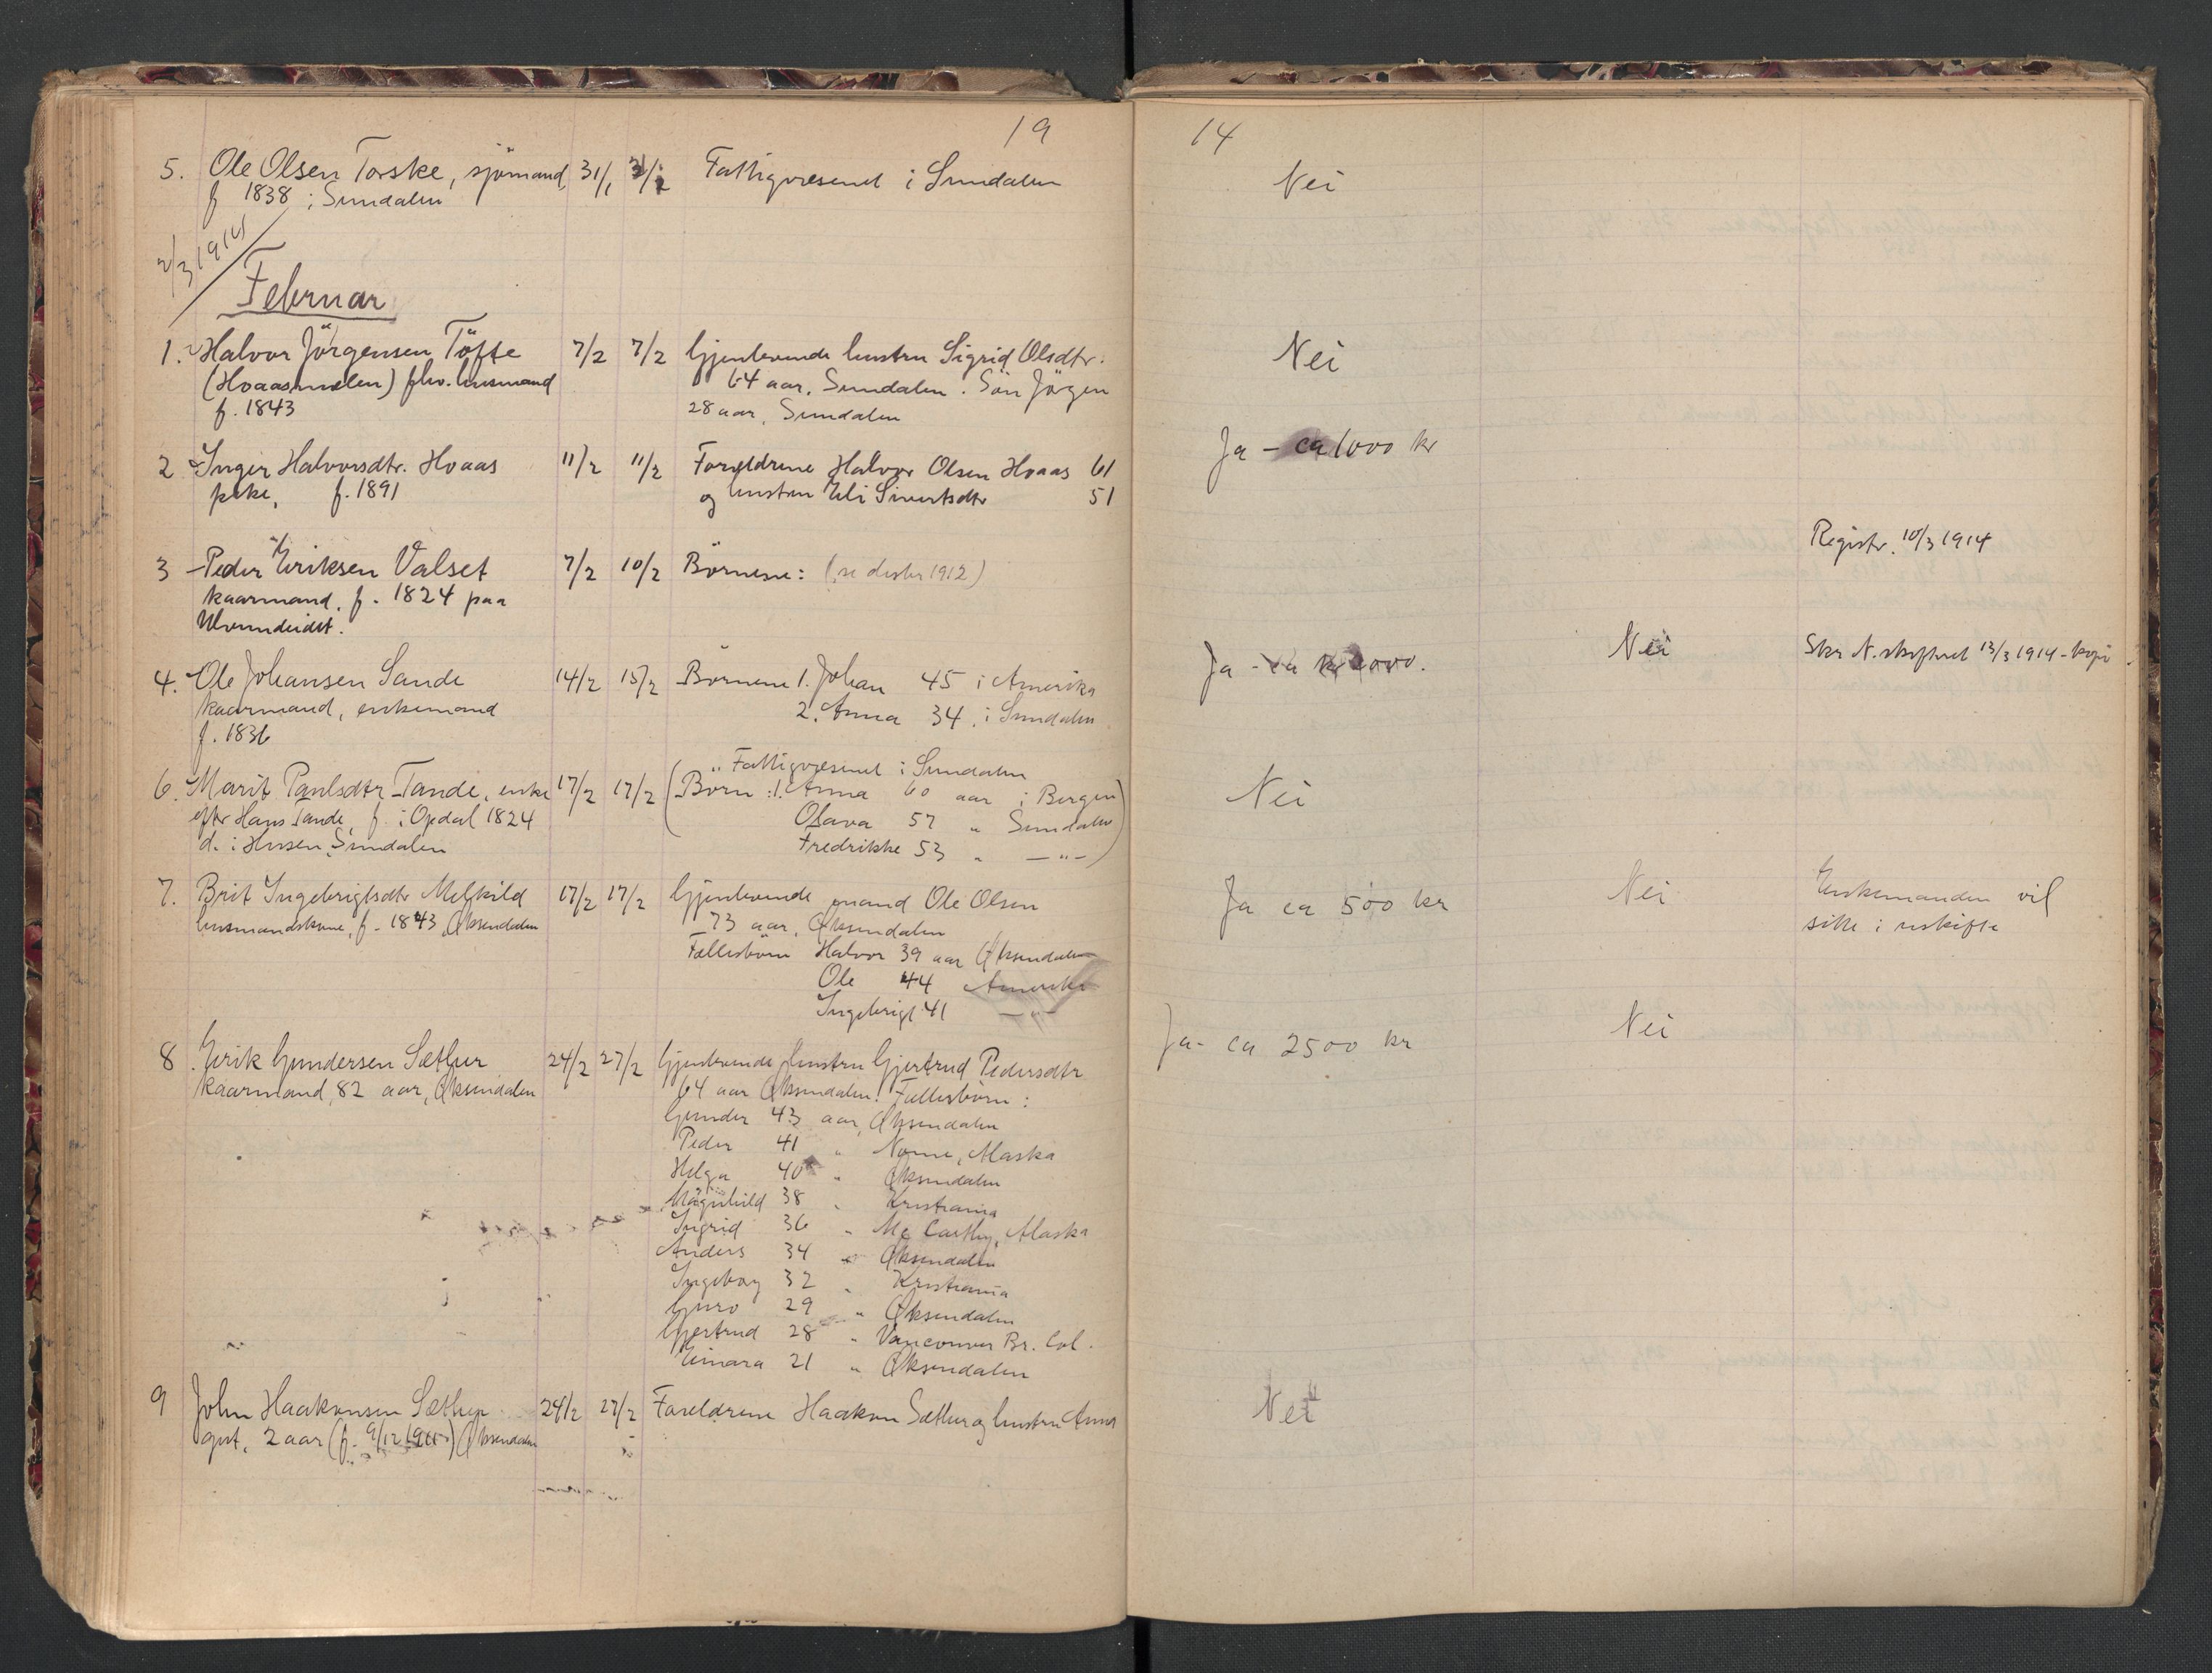 19 14
5. Ole Olsen Torske, sjömand, 31/1 Fattigvæsenet i Sundalen Nei
f 1838 i Sundalen
2/3 1914
Februar
1. Halvor Jörgensen Töfte 7/2 7/2 Gjenlevende hustru Sigrid Olsdtr. Nei
(Hoaasmælen) fhv. husmand 64 aar, Sundalen. Sön Jörgen
f. 1843 28 aar, Sundalen
2 Inger Halvorsdtr. Hoaas 11/2 11/2 Forældrene Halvor Olsen Hoaas 61 Ja - ca 1000 kr
pike, f. 1891 og hustru Eli Sivertsdtr 51
3 Peder Eriksen Valset 7/2 10/2 Börnene: (se 1912) Registr. 10/3 1914
kaarmand, f. 1824 paa
4. Ole Johansen Sande 14/2 15/2 Börnene 1. Johan 45 i Amerika Ja - ca kr 000. Nei Skr 13/3 1914 - kopi
kaarmand, enkemand 2. Anna 34 i Sundalen
f. 1836
" Fattigvæsenet i Sundalen
6. Marit Paulsdtr Tande, enke 17/2 17/2 (Börn: 1. Anna 60 aar i Bergen) Nei
efter Hans Tande, f. i Opdal 1824 Olava 57 " Sundalen)
d. i Husen, Sundalen Fredrikke 53 " —"—)
7. Brit Ingebrigtsdtr Melkild 17/2 17/2 Gjenlevende mand Ole Olsen Ja ca 500 kr Nei Enkemanden vil
husmandskone, f. 1843, Øksendalen 73 aar, Øksendalen sitte i uskifte
Fællesbörn Halvor 39 aar Øksendalen
Ole 44 Amerika
Ingebrigt 41 —"—
8. Erik Gundersen Sæther 24/2 27/2 Gjenlevende hustru Gjertrud Pedersdtr Ja - ca 2500 kr Nei
kaarmand, 82 aar, Øksendalen 64 aar Øksendalen. Fællesbörn:
Gunder 43 aar, Øksendalen
Peder 41 " Nome, Alaska
Helga 40 " Øksendalen
Magnhild 38 " Kristiania
Ingrid 36 " Mc Carthy, Alaska
Anders 34 " Øksendalen
Ingeborg 32 " Kristiania
Guro 29 " Øksendalen
Gjertrud 28 " Vancouver Br. Col.
Einara 21 " Øksendalen
9 John Haakonsen Sæther 24/2 27/2 Forældrene Haakon Sæther og hustru Anna Nei
gut, 2 aar (f. 9/12 1911) Øksendalen